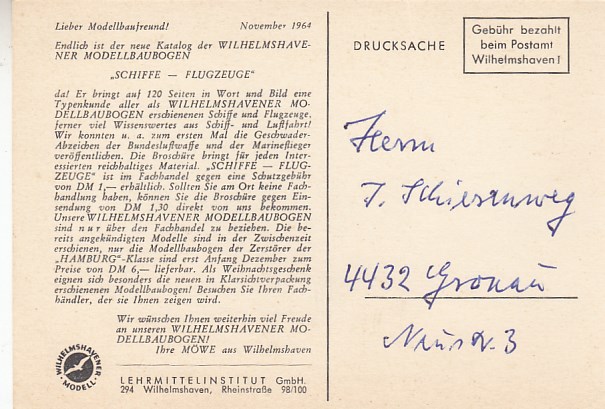 Lieber Modellbaufreund! November 1964
Endlich ist der neue Katalog der WILHELMSHAVE-
NER MODELLBAUBOGEN
„SCHIFFE — FLUGZEUGE“
da! Er bringt auf 120 Seiten in Wort und Bild eine
Typenkunde aller als WILHELMSHAVENER MO-
DELLBAUBOGEN erschienenen Schiffe und Flugzeuge,
ferner viel Wissenswertes aus Schiff- und Luftfahrt!
Wir konnten u. a. zum ersten Mal die Geschwader-
Abzeichen der Bundesluftwaffe und der Marineflieger
veröffentlichen. Die Broschüre bringt für jeden Inter-
essierten reichhaltiges Material. „SCHIFFE — FLUG-
ZEUGE“ ist im Fachhandel gegen eine Schutzgebühr
von DM 1,— erhältlich. Sollten Sie am Ort keine Fach-
handlung haben, können Sie die Broschüre gegen Ein-
sendung von DM 1,30 direkt von uns bekommen.
Unsere WILHELMSHAVENER MODELLBAUBOGEN
sind nur über den Fachhandel zu beziehen. Die be-
reits angekündigten Modelle sind in der Zwischenzeit
erschienen, nur die Modellbaubogen der Zerstörer der
„HAMBURG“-Klasse sind erst Anfang Dezember zum
Preise von DM 6,— lieferbar. Als Weihnachtsgeschenk
eignen sich besonders die neuen in Klarsichtverpackung
erschienenen Modellbaubogen! Besuchen Sie Ihren Fach-
händler, der sie Ihnen zeigen wird.
Wir wünschen Ihnen weiterhin viel Freude
an unseren WILHELMSHAVENER MO-
DELLBAUBOGEN!
Ihre MÖWE aus Wilhelmshaven
WILHELMSHAVENER
MODELL
LEHRMITTELINSTITUT GmbH.
294 Wilhelmshaven, Rheinstraße 98/100
DRUCKSACHE
Gebühr bezahlt
beim Postamt
Wilhelmshaven 1
Herrn
4432 Gronau